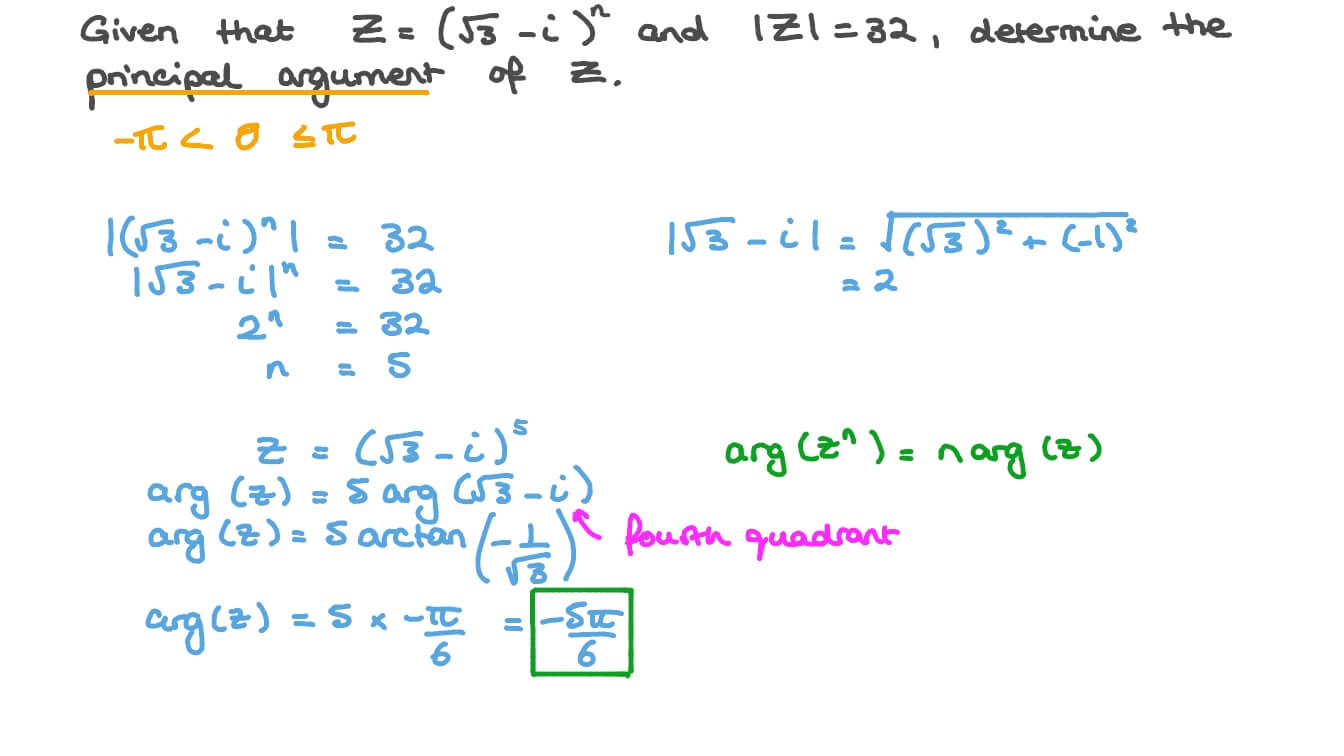 Given that Z = (√3 - i)ⁿ and |Z| = 32, determine the
principal argument of Z.
-π < θ ≤ π
|(√3 - i)ⁿ| = 32
|√3 - i|ⁿ = 32
2ⁿ = 32
n = 5
|√3 - i| = √((√3)² + (-1)²)
= 2
Z = (√3 - i)⁵
arg (z) = 5 arg (√3 - i)
arg (z) = 5 arctan (-1/√3)
arg (z) = 5 × -π/6 = -5π/6
arg (zⁿ) = n arg (z)
fourth quadrant